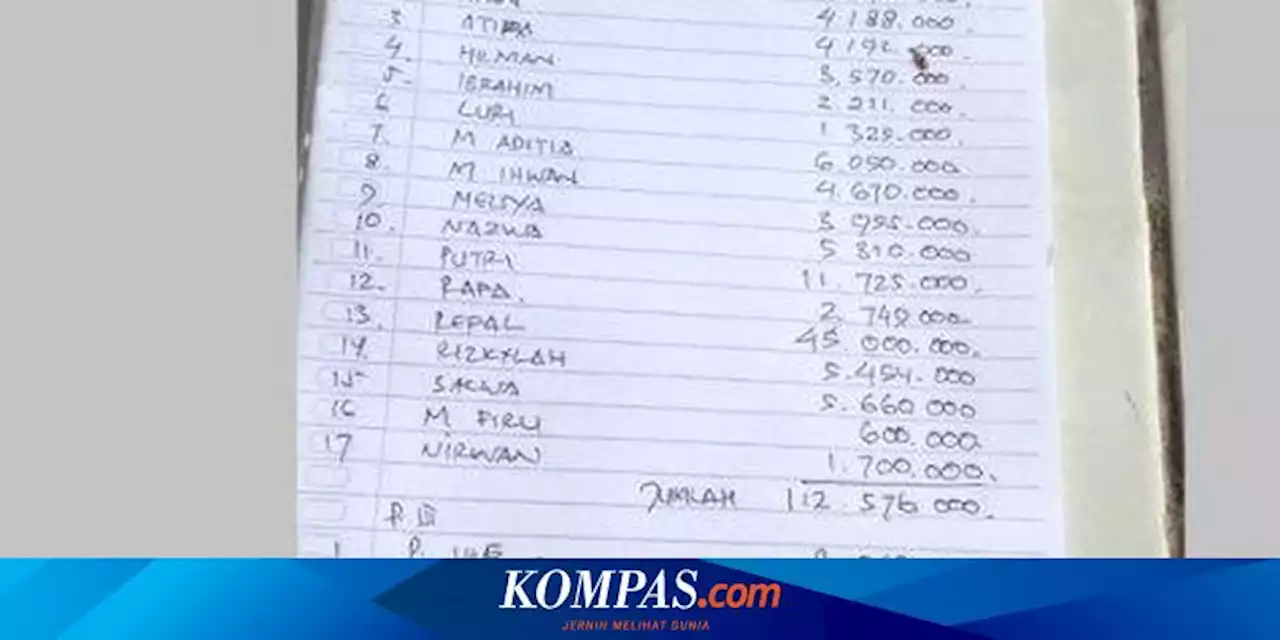 3 ATIRA 4 188.000
4. HILMAN 4 192 000
5. IBRAHIM 3.570.000
6 LURI 2 211.000
7. M ADITIA 1 329.000
8. M IHWAN 6 050.000
9. MELSYA 4.670.000
10. NAZWA 3 925.000
11. PUTRI 5 310.000
12. RAPA. 11.725.000
13. REPAL 2.749.000
14. RIZKYLAH 45.000.000.
15 SALWA 5.454.000
16 M FIRLI 5.660 000
17 NIRWAN 600.000
1.700.000.
JUMLAH 112.576 000.
P. III
1 P.
KOMPAS.com
JERNIH MELIHAT DUNIA